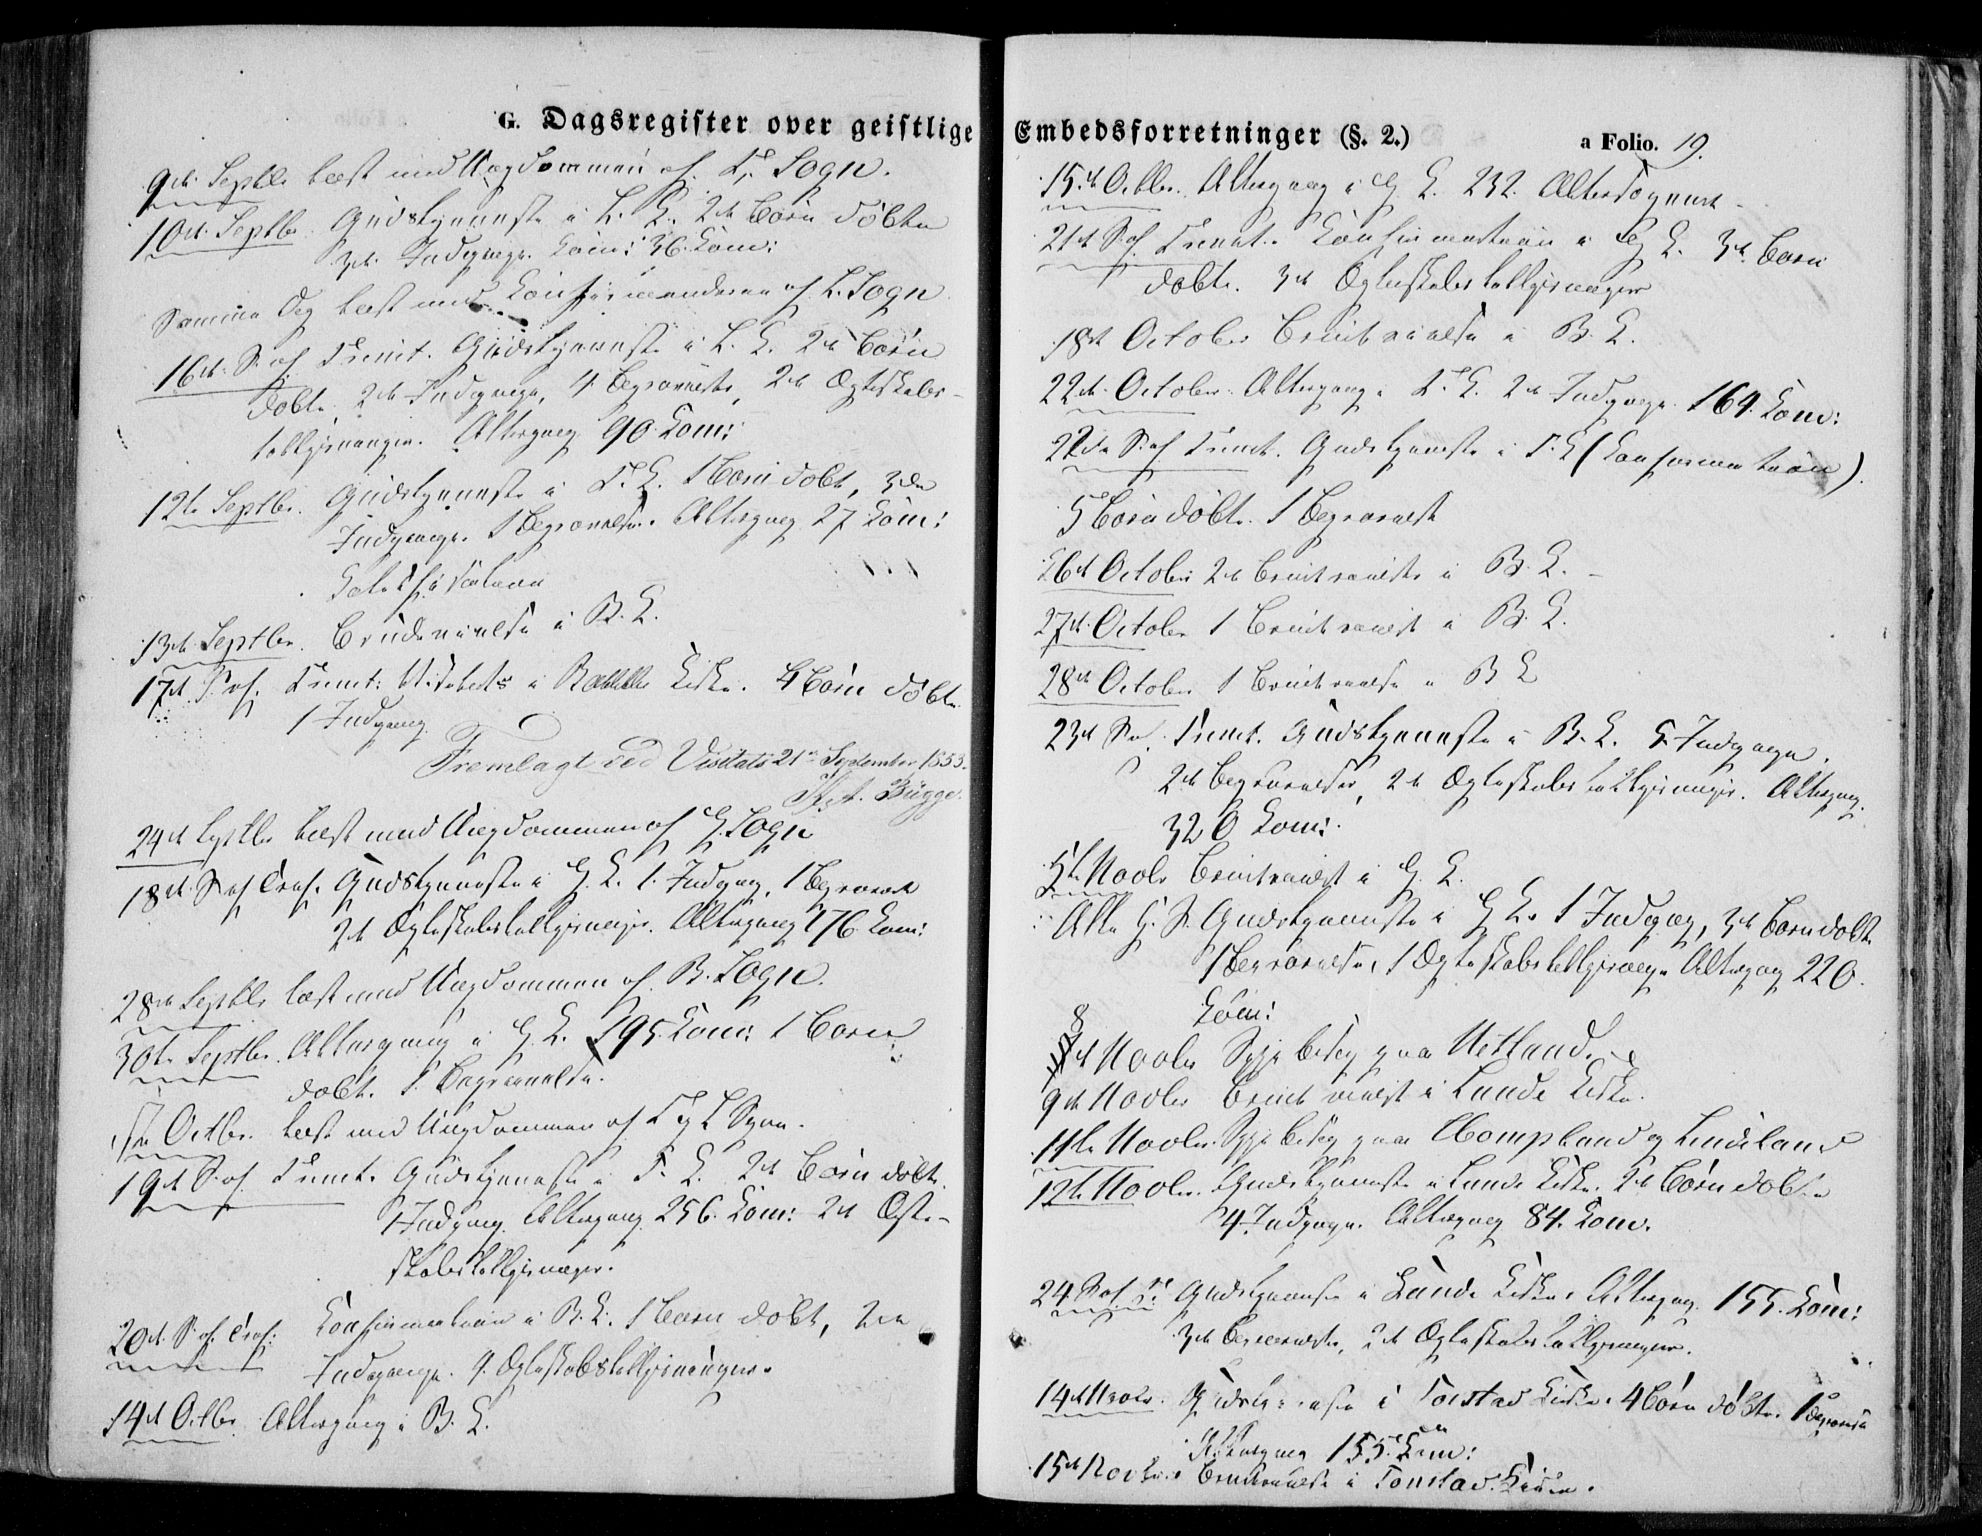 G. Dagsregister over geistlige
9de Septbr læst med Ungdommen af T. Sogn.
10de Septbr. Gudstjeneste i L. K. 2de Børn døbte
3de Indgange. Kom: 36 Kom:
Samme Dag læst med Konfirmanderne af L. Sogn
16de S. af Trinit. Gudstjeneste i L. K. 2de Børn
døbte, 2de Indgange, 4 Begravelse, 2de Ægteskabs-
tillysninger. Altergang 90 Kom:
12te Septbr. Gudstjeneste i T. K. 1 Barn døbt, 3de
Indgange. 1 Begravelse. Altergang 27 Kom:
13de Septbr. Brudevielse i B. K.
17de S. af Trinit: Visitats i Bakke Kirke. 4 Børn døbte
1 Indgang
Fremlagt ved Visitats 21de September 1855.
Bugge.
24de Septbr læst med Ungdommen af G. Sogn
18de S. af Tref. Gudstjeneste i G. K. 1. Indgang, 1 Begravelse
2de Ægteskabstillysninger. Altergang 176 Kom:
28de Septbr læst med Ungdommen af B. Sogn.
30te Septbr. Altergang i G. K. 195. Kom: 1 Barn
døbt. 1 Begravelse.
Octbr. læst med Ungdommen af T og L Sogne.
19de S. af Trinit. Gudstjeneste i T. K. 2de Børn døbte.
1 Indgang. Altergang 256. Kom: 2de Ægte-
skabstillysninger.
20de S. af Tref: Konfirmation i B. K. 1 Barn døbt, 2de
Indgange. 4. Ægteskabstillysninger.
14de Octbr Altergang i B. K.
Embedsforretninger (§. 2.)
a Folio. 19.
15de Octbr. Altergang i G K. 232.
21de S. af Trinit. Konfirmation i G K. 3de Børn
døbte. 3de Ægteskabstillysninger
18de October Brudevielse i B. K.
22de October Altergang i T. K. 2de Indgange. 164. Kom:
22de S. af Trinit. Gudstjeneste i T. K (Konfirmation).
5 Børn døbte. 1 Begravelse
26de October 2de Brudevielser i B. K.
27de October 1 Brudevielse i B. K.
28de October 1 Brudevielse i B K
23de S. af Trinit. Gudstjeneste i B. K. 5 Indgange.
2de Begravelser, 2de Ægteskabstillysninger. Altergang.
320 Kom:
5te Novbr Brudevielse i G. K.
Alle H. D. Gudstjeneste i G K. 1 Indgang, 3de Børn døbte
1 Begravelse, 1 Ægteskabstillysning Altergang 220.
Kom:
8de Novbr Sygebesøg paa Netland.
9de Novbr Brudevielse i Lunde Kirke.
11te Novbr. Sygebesøg paa Hompland og Lindeland
12te Novbr. Gudstjeneste i Lunde Kirke. 2de Børn døbte
4 Indgange. Altergang 84. Kom.
24 S. af Tr. Gudstjeneste i Lunde Kirke. Altergang 155. Kom:
3de Begravelser, 2de Ægteskabstillysninger.
14de Novbr. Gudstjeneste i Tonstad Kirke. 4 Børn døbte. 1 Begravelse
Altergang 155. Kom:
15de Novbr. Brudevielse i Tonstad Kirke.